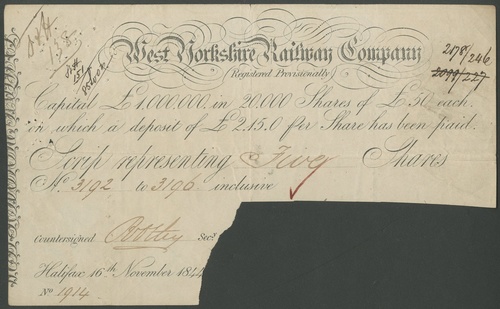 West Yorkshire Railway Company
Registered Provisionally
2178/246
2099/227
Capital £1,000,000, in 20,000 Shares of £50 each.
on which a deposit of £2.15.0 per Share has been paid.
Scrip representing Five Shares
No. 3192 to 3196 inclusive
Countersigned Secy.
Halifax 16th November 1844
No. 1914